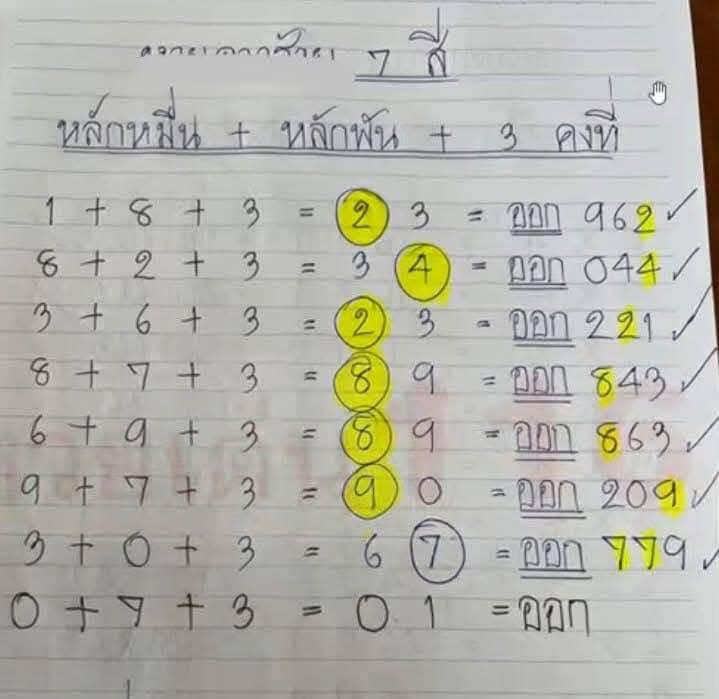 7 สี
หลักหมื่น + หลักพัน + 3 คงที่
1 + 8 + 3 = 2 3 = ออก 962 ✓
8 + 2 + 3 = 3 4 = ออก 044 ✓
3 + 6 + 3 = 2 3 = ออก 221 ✓
8 + 7 + 3 = 8 9 = ออก 843 ✓
6 + 9 + 3 = 8 9 = ออก 863 ✓
9 + 7 + 3 = 9 0 = ออก 209 ✓
3 + 0 + 3 = 6 7 = ออก 779 ✓
0 + 7 + 3 = 0 1 = ออก